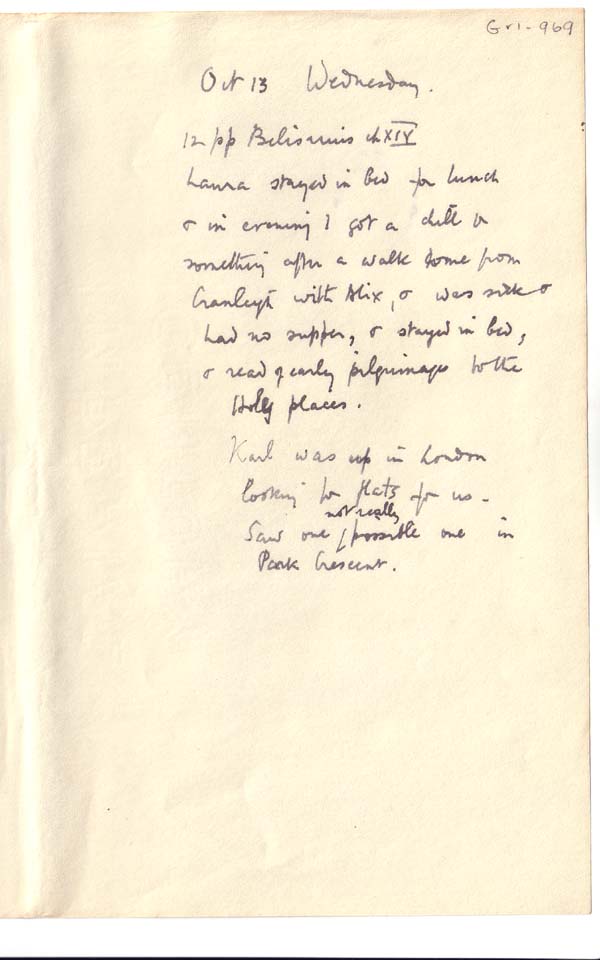 Gr1-969
Oct 13 Wednesday.
12 pp Belisarius ch XIV
Laura stayed in bed for lunch
& in evening I got a chill or
something after a walk home from
Cranleigh with Alix, & was sick &
had no supper, & stayed in bed,
& read of early pilgrimages to the
Holy places.
Karl was up in London
looking for flats for us -
not really
Saw one / possible one in
Park Crescent.